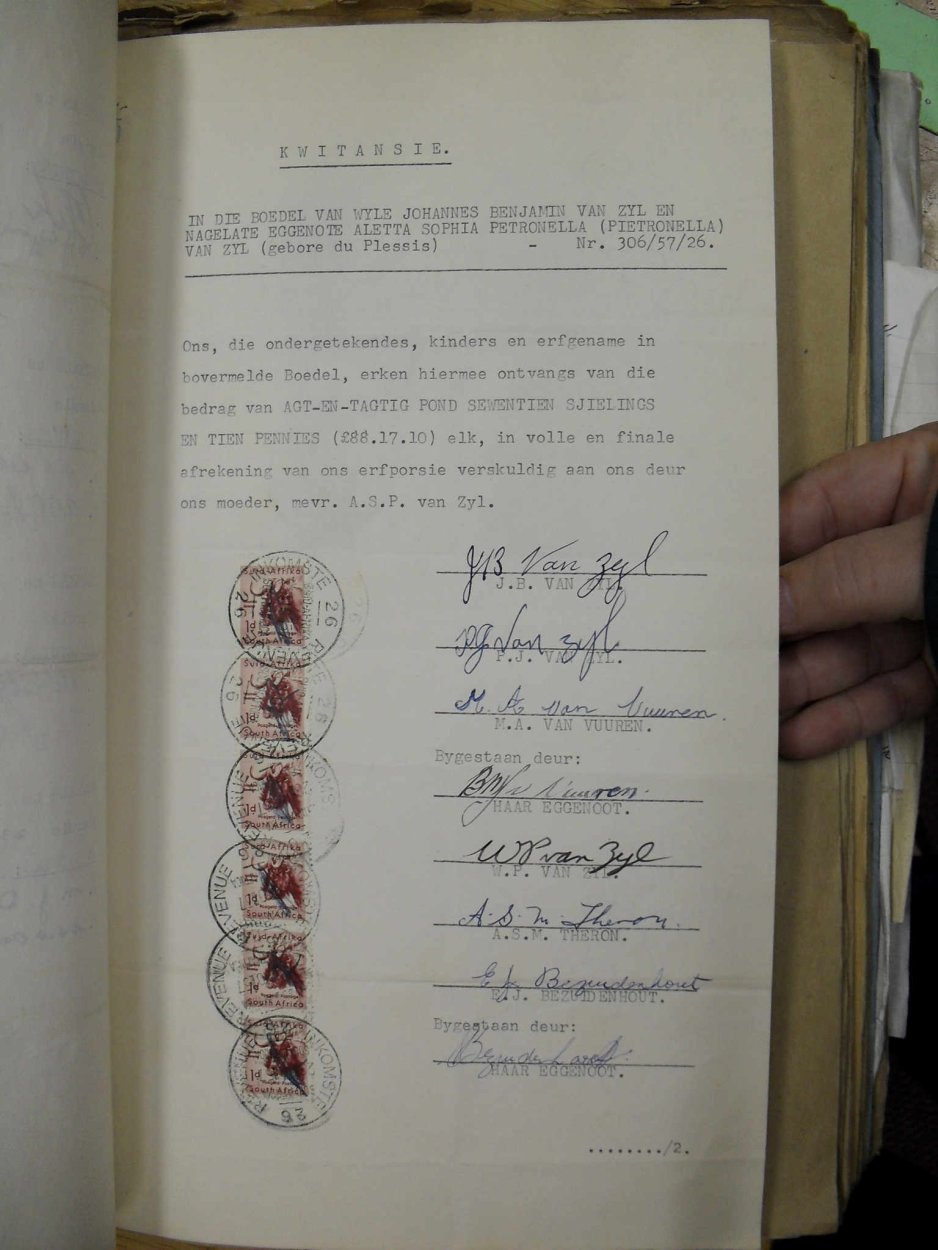 KWITANSIE.
IN DIE BOEDEL VAN WYLE JOHANNES BENJAMIN VAN ZYL EN
NAGELATE EGGENOTE ALETTA SOPHIA PETRONELLA (PIETRONELLA)
VAN ZYL (gebore du Plessis) - Nr. 306/57/26.
Ons, die ondergetekendes, kinders en erfgename in
bovermelde Boedel, erken hiermee ontvangs van die
bedrag van AGT-EN-TAGTIG POND SEWENTIEN SJIELINGS
EN TIEN PENNIES (£88.17.10) elk, in volle en finale
afrekening van ons erfporsie verskuldig aan ons deur
ons moeder, mevr. A.S.P. van Zyl.
JB Van Zyl
J.B. VAN ZYL.
PJ Van Zyl
P.J. VAN ZYL.
M. A van Vuuren.
M.A. VAN VUUREN.
Bygestaan deur:
Vuuren.
HAAR EGGENOOT.
WP van Zyl
W.P. VAN ZYL.
A. S. M. Theron.
A.S.M. THERON.
E J. Bezuidenhout
E.J. BEZUIDENHOUT.
Bygestaan deur:
Bezuidenhout.
HAAR EGGENOOT.
......../2.
INKOMSTE 26 REVENUE 26
Suid-Afrika
1d
South Africa
26 REVENUE 26
Suid-Afrika
1d
South Africa
REVENUE INKOMSTE
1d
South Africa
REVENUE INKOMSTE
1d
South Africa
REVENUE
Suid-Afrika
1d
South Africa
REVENUE INKOMSTE 26
1d
South Africa